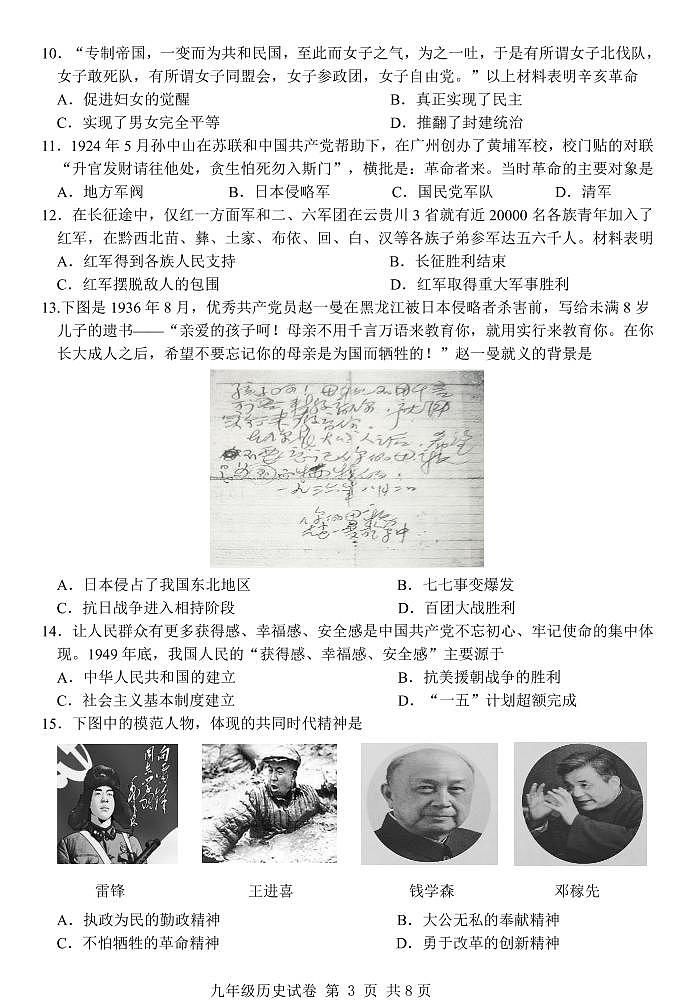 10．“专制帝国，一变而为共和民国，至此而女子之气，为之一吐，于是有所谓女子北伐队，
女子敢死队，有所谓女子同盟会，女子参政团，女子自由党。”以上材料表明辛亥革命
A．促进妇女的觉醒 B．真正实现了民主
C．实现了男女完全平等 D．推翻了封建统治
11．1924 年 5 月孙中山在苏联和中国共产党帮助下，在广州创办了黄埔军校，校门贴的对联
“升官发财请往他处，贪生怕死勿入斯门”，横批是：革命者来。当时革命的主要对象是
A．地方军阀 B．日本侵略军 C．国民党军队 D．清军
12．在长征途中，仅红一方面军和二、六军团在云贵川 3 省就有近 20000 名各族青年加入了
红军，在黔西北苗、彝、土家、布依、回、白、汉等各族子弟参军达五六千人。材料表明
A．红军得到各族人民支持 B．长征胜利结束
C．红军摆脱敌人的包围 D．红军取得重大军事胜利
13.下图是 1936 年 8 月，优秀共产党员赵一曼在黑龙江被日本侵略者杀害前，写给未满 8 岁
儿子的遗书——“亲爱的孩子呵！母亲不用千言万语来教育你，就用实行来教育你。在你
长大成人之后，希望不要忘记你的母亲是为国而牺牲的！”赵一曼就义的背景是
A．日本侵占了我国东北地区 B．七七事变爆发
C．抗日战争进入相持阶段 D．百团大战胜利
14．让人民群众有更多获得感、幸福感、安全感是中国共产党不忘初心、牢记使命的集中体
现。1949 年底，我国人民的“获得感、幸福感、安全感”主要源于
A．中华人民共和国的建立 B．抗美援朝战争的胜利
C．社会主义基本制度建立 D．“一五”计划超额完成
15．下图中的模范人物，体现的共同时代精神是
雷锋 王进喜 钱学森 邓稼先
A．执政为民的勤政精神 B．大公无私的奉献精神
C．不怕牺牲的革命精神 D．勇于改革的创新精神
九年级历史试卷 第 3 页 共 8 页